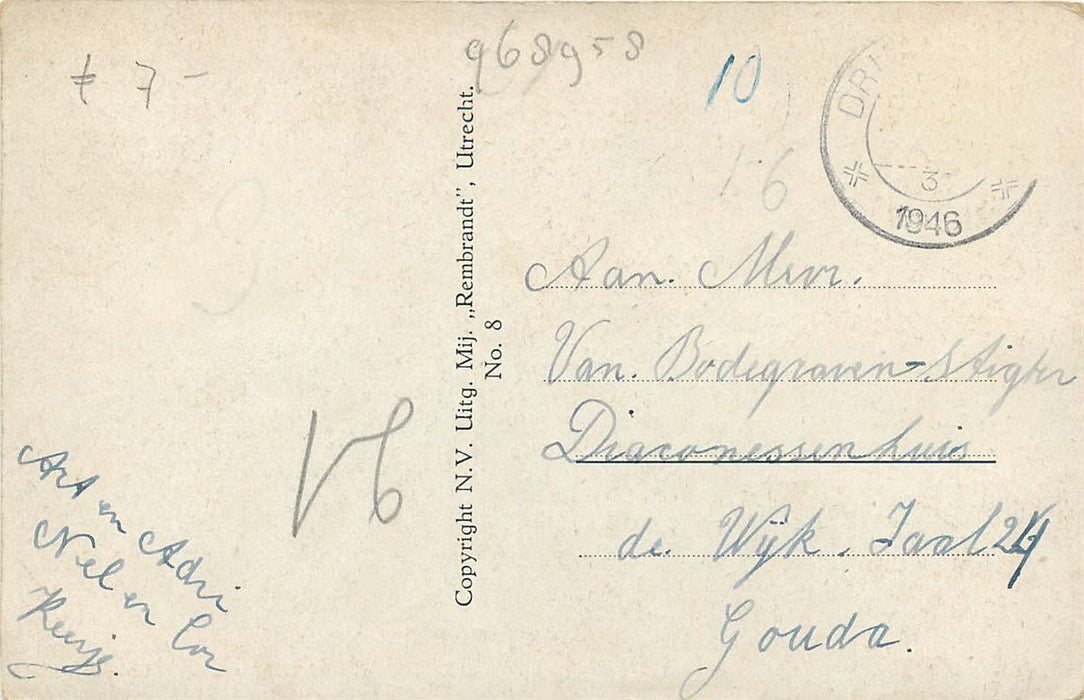 ≠ 7 -
968958
10
16
DRI
3
1946
Copyright N.V. Uitg. Mij. „Rembrandt”, Utrecht.
No. 8
Aan. Mevr.
Van. Bodegraven-Stigter
Diaconessenhuis
de. Wijk. Zaal 24
Gouda.
V6
Art en Adri
Nel en Cor
Keesje.